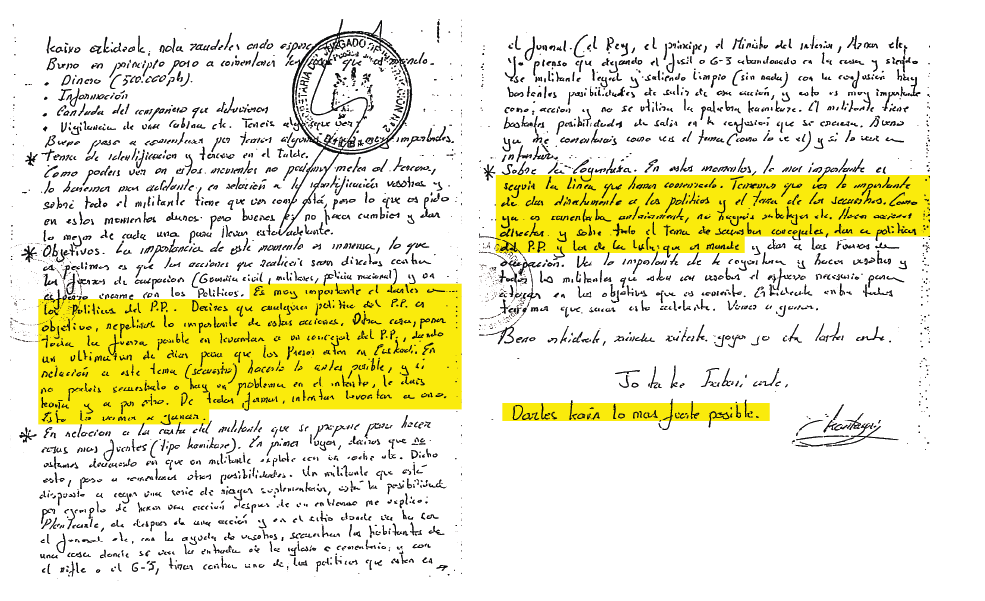 Kaixo
Bueno en principio paso a comentaros
• Dinero (500.000 pts).
• Información
• Cantada del compañero que detuvieron
• Vigilancia de una cabina etc. Teneis
SECRETARIA DEL JUZGADO DE INSTRUCCION Nº 2
Bueno paso a comentaros por temas importantes.
* Tema de identificacion y tercero en el Talde.
Como podeis ver en estos momentos no podemos meter al tercero,
lo haremos mas adelante, en relación a la identificación vosotros y
sobre todo el militante tiene que ver como está, pero lo que os pido
en estos momentos duros pero buenos es no hacer cambios y dar
lo mejor de cada uno para llevar esto adelante.
* Objetivos. La importancia de este momento es inmensa, lo que
os pedimos es que las acciones que realiceis sean directas contra
las fuerzas de ocupación (Guardia civil, militares, policia nacional) y un
esfuerzo enorme con los Politicos. Es muy importante el darles a
los Politicos del P.P. Deciros que cualquier politico del P.P. es
objetivo, repetiros lo importante de estas acciones. Otra cosa, poner
toda la fuerza posible en levantar a un concejal del P.P., dando
un ultimatum de dias para que los Presos esten en Euskadi. En
relación a este tema (secuestro) hacerlo lo antes posible, y si
no podeis secuestrarlo o hay un problema en el intento, le dais
kaña y a por otro. De todas formas, intentar levantar a uno.
Esto lo vamos a ganar.
* En relacion a la carta del militante que se propone para hacer
cosas mas fuertes (tipo kamikaze). En primer lugar, deciros que no
estamos deacuerdo en que un militante explote con un coche etc. Dicho
esto, paso a comentaros otras posibilidades. Un militante que está
dispuesto a coger una serie de riesgos suplementarios, está la posibilidad
por ejemplo de hacer una acción despues de un entierro me explico:
Plantearte, de despues de una acción y en el sitio donde va ha ser
el funeral etc, con la ayuda de vosotros, secuestrar los habitantes de
una casa donde se vea la entrada de la iglesia o cementerio, y con
el rifle o el G-3, tirar contra uno de los politicos que esten en
el funeral. (el Rey, el principe, el Ministro del interior, Aznar etc.
Yo pienso que dejando el fusil o G-3 abandonado en la casa y siendo
ese militante legal y saliendo limpio (sin nada) con la confusión hay
bastantes posibilidades de salir de esa acción, y esto es muy importante
como acción y no se utiliza la palabra kamikaze. El militante tiene
bastantes posibilidades de salir en la confusión que se crearia. Bueno
ya me comentareis como veis el tema (como lo ve el) y si lo veis a
intentarlo.
* Sobre la Coyuntura. En estos momentos, lo mas importante es
seguir la linea que hemos comenzado. Tenemos que ver lo importante
de dar directamente a los politicos y el tema de los secuestros. Como
ya os comentaba anteriormente, no hagais sabotajes etc. Hacer acciones
directas, y sobre todo el tema de secuestrar concejales, dar a politicos
del P.P. y los de la lista que os mande y dar a las Fuerzas de
ocupación. Ver lo importante de la coyuntura y hacer vosotros y
todos los militantes que estan con vosotros el esfuerzo necesario para
en los objetivos que os comento. Estudiarlo entre todos
tenemos que sacar esto adelante. Vamos a ganar.
Beno
Jo ta ke Irabazi arte.
Darles kaña lo mas fuerte posible.